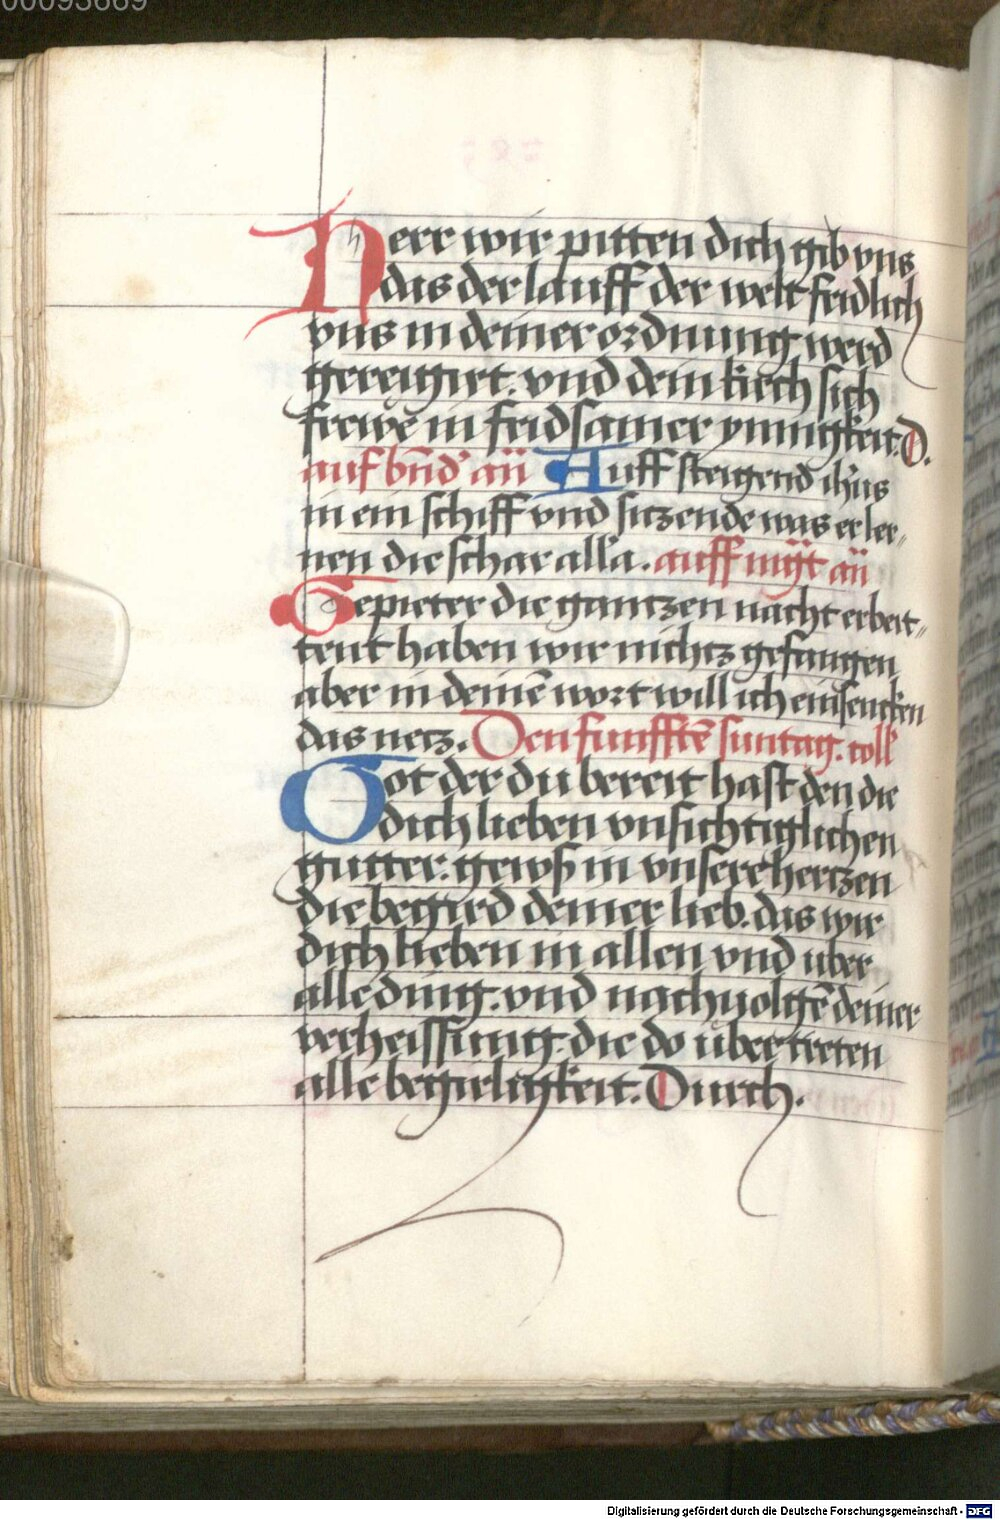 00093669
Herr wir pitten dich gib vns
das der lauff der welt fridlich
vns in deiner ordnung werd
gereigirt. vnd dein kirch sich
frewē in fridsamer ynnigkeit. D.
auf bn̄d' an̄ Auff steigend ih̄us
in ein schiff vnd siczende was er ler„
nen die schar all'a. auff mg̈t an̄
Gepieter die gantzen nacht erbeit„
tent haben wir nichcz gefangen
aber in deinē wort will ich einsencken
das necz. Den funfftē suntag. coll'
Got der du bereit hast den die
dich lieben vnsichtiglichen
gutter. gewß in vnsere hertzen
die begird deiner lieb. das wir
dich lieben in allen vnd uber
alle ding. vnd nachuolgē deiner
verheissung. die do ubertreten
alle begirligkeit. Durch.
Digitalisierung gefördert durch die Deutsche Forschungsgemeinschaft - DFG